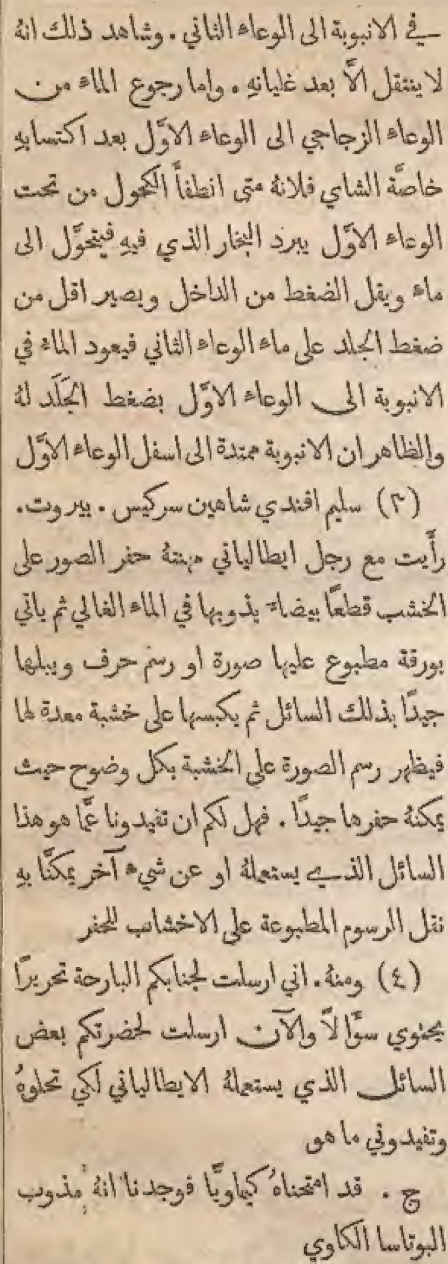 في الانبوبة الى الوعاء الثاني. وشاهد ذلك انهُ
لا ينتقل الَّا بعد غليانهِ. واما رجوع الماء من
الوعاء الزجاجي الى الوعاء الاوَّل بعد اكتسابهِ
خاصَّة الشاي فلانهُ متى انطفأَ الكحول من تحت
الوعاء الاوَّل يبرد البخار الذي فيهِ فيتحوَّل الى
ماء ويقل الضغط من الداخل ويصير اقل من
ضغط الجلد على ماء الوعاء الثاني فيعود الماء في
الانبوبة الى الوعاء الاوَّل بضغط الجَلَد لهُ
والظاهر ان الانبوبة ممتدة الى اسفل الوعاء الاوَّل
(٣) سليم افندي شاهين سركيس. بيروت.
رأَيت مع رجل ايطالياني مهنتهُ حفر الصور على
الخشب قطعًا بيضاء يذوبها في الماء الغالي ثم ياتي
بورقة مطبوع عليها صورة او رسم حرف ويبلها
جيدًا بذلك السائل ثم يكبسها على خشبة معدة لها
فيظهر رسم الصورة على الخشبة بكل وضوح حيث
يمكنهُ حفرها جيدًا. فهل لكم ان تفيدونا عمَّا هو هذا
السائل الذي يستعملهُ او عن شيء آخر يمكنَّا بهِ
نقل الرسوم المطبوعة على الاخشاب للحفر
(٤) ومنهُ. اني ارسلت لجنابكم البارحة تحريرًا
يحتوي سؤَالًا والآن ارسلت لحضرتكم بعض
السائل الذي يستعملهُ الايطالياني لكي تحلوهُ
وتفيدوني ما هو
ج. قد امتحناهُ كيماويًّا فوجدنا انهُ مذوب
البوتاسا الكاوي